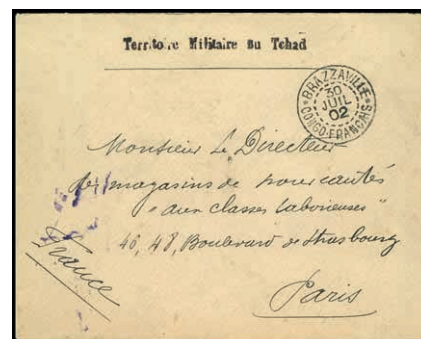 Territoire Militaire du Tchad
BRAZZAVILLE
30
JUIL
02
CONGO-FRANCAIS
Monsieur Le Directeur
des magasins de nouveautés
"aux classes laborieuses"
46, 48, Boulevard de Strasbourg
Paris
France